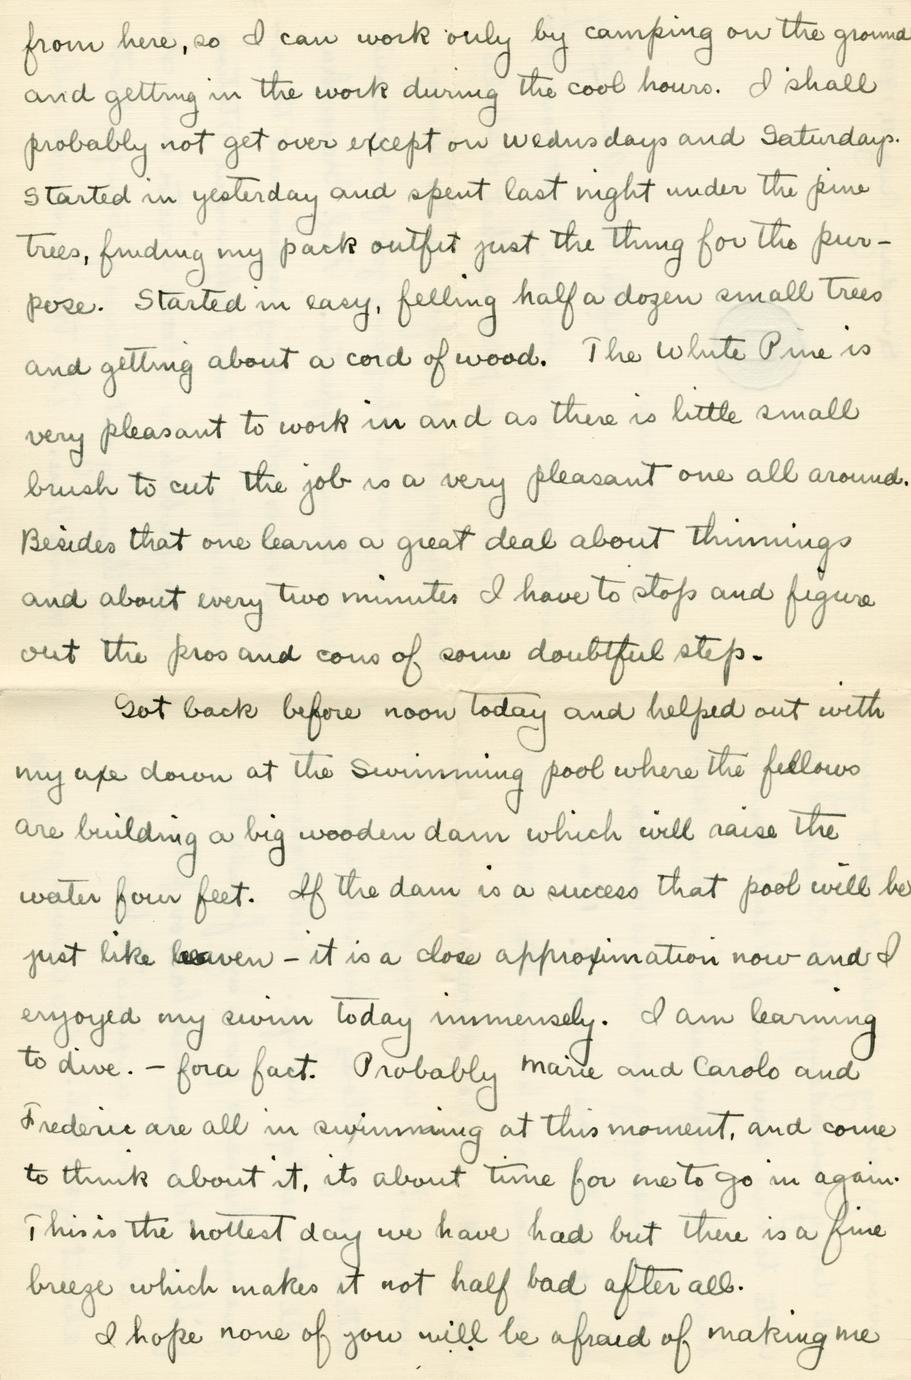 from here, so I can work only by camping on the ground
and getting in the work during the cool hours. I shall
probably not get over except on Wednsdays and Saturdays.
Started in yesterday and spent last night under the pine
trees, finding my pack outfit just the thing for the pur-
pose. Started in easy, felling half a dozen small trees
and getting about a cord of wood. The White Pine is
very pleasant to work in and as there is little small
brush to cut the job is a very pleasant one all around.
Besides that one learns a great deal about thinnings
and about every two minutes I have to stop and figure
out the pros and cons of some doubtful step.
Got back before noon today and helped out with
my axe down at the Swimming pool where the fellows
are building a big wooden dam which will raise the
water four feet. If the dam is a success that pool will be
just like heaven – it is a close approximation now and I
enjoyed my swim today immensely. I am learning
to dive. – for a fact. Probably Marie and Carolo and
Frederic are all in swimming at this moment, and come
to think about it, its about time for me to go in again.
This is the hottest day we have had but there is a fine
breeze which makes it not half bad after all.
I hope none of you will be afraid of making me